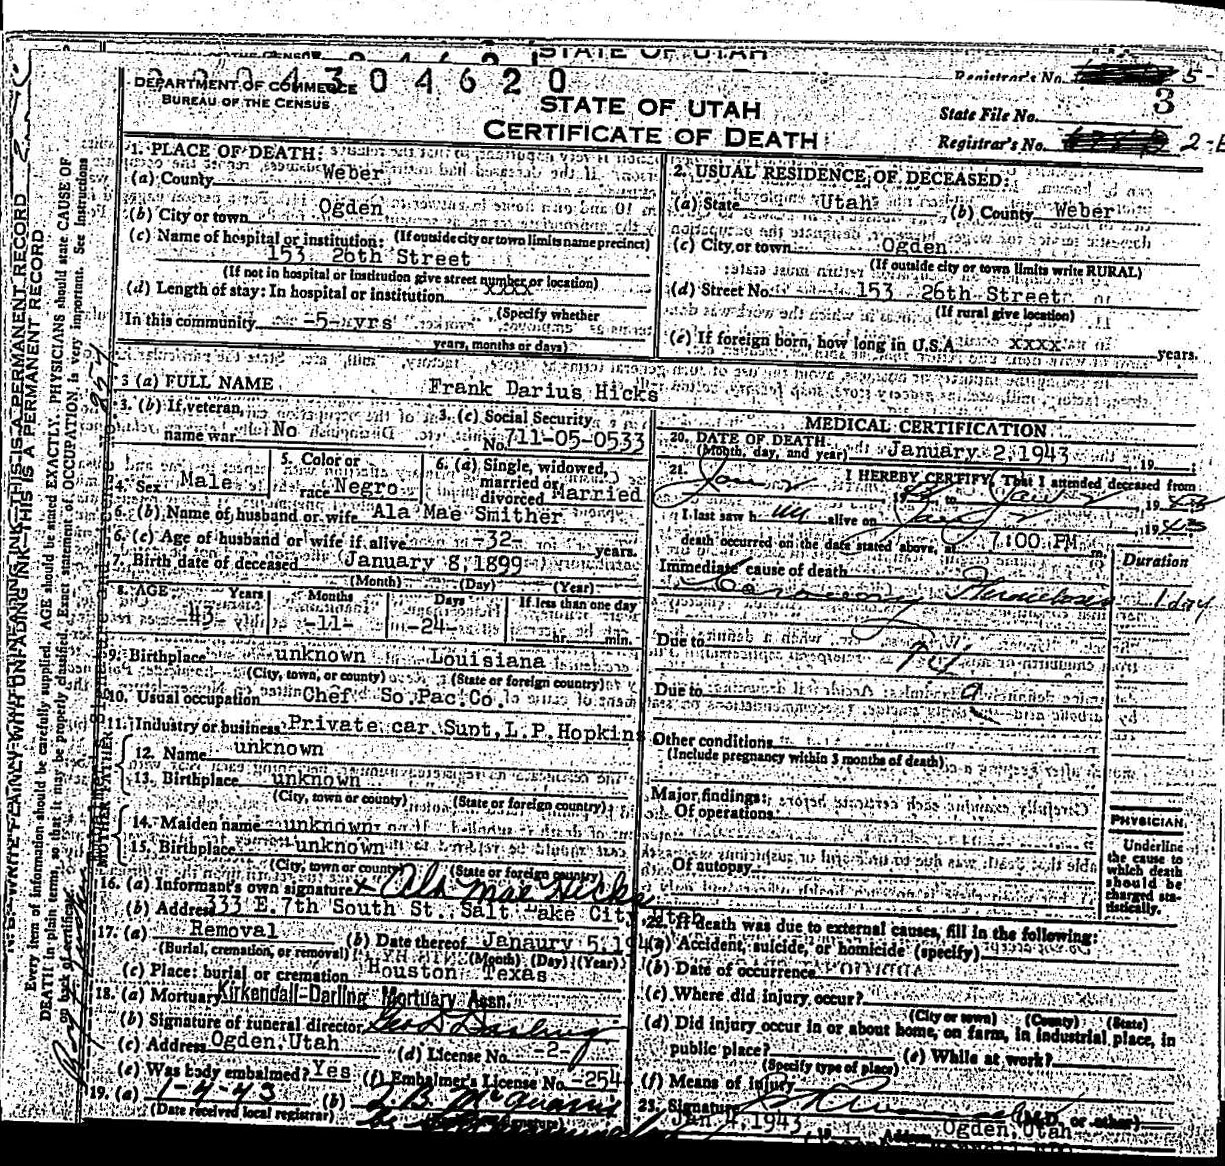 STATE OF UTAH
304620
DEPARTMENT OF COMMERCE
BUREAU OF THE CENSUS
STATE OF UTAH
CERTIFICATE OF DEATH
Registrar's No. 5-
State File No. 3
Registrar's No. 2-
1. PLACE OF DEATH:
(a) County Weber
(b) City or town Ogden
(If outside city or town limits name precinct)
(c) Name of hospital or institution:
153 26th Street
(If not in hospital or institution give street number or location)
(d) Length of stay: In hospital or institution xxxx
(Specify whether
In this community -5-yrs
years, months or days)
2. USUAL RESIDENCE OF DECEASED:
(a) State Utah (b) County Weber
(c) City or town Ogden
(If outside city or town limits write RURAL)
(d) Street No. 153 26th Street
(If rural give location)
(e) If foreign born, how long in U.S.A. xxxx years.
3 (a) FULL NAME Frank Darius Hicks
3. (b) If veteran,
name war No
3. (c) Social Security
No. 711-05-0533
4. Sex Male
5. Color or
race Negro
6. (a) Single, widowed,
married or
divorced Married
6. (b) Name of husband or wife Ala Mae Smither
6. (c) Age of husband or wife if alive -32- years.
7. Birth date of deceased January 8,1899
(Month) (Day) (Year)
8. AGE Years Months Days If less than one day
-43- -11- -24- hr. min.
9. Birthplace unknown Louisiana
(City, town, or county) (State or foreign country)
10. Usual occupation Chef So.Pac.Co.
11. Industry or business Private car Supt,L.P.Hopkins
FATHER
12. Name unknown
13. Birthplace unknown
(City, town or county) (State or foreign country)
MOTHER
14. Maiden name unknown
15. Birthplace unknown
(City, town or county) (State or foreign country)
16. (a) Informant's own signature x Ala Mae Hicks
(b) Address 333 E.7th South St. Salt Lake City Utah
17. (a) Removal (b) Date thereof Janaury 5,194
(Burial, cremation, or removal) (Month) (Day) (Year)
(c) Place: burial or cremation Houston Texas
18. (a) Mortuary Kirkendall-Darling Mortuary Assn.
(b) Signature of funeral director Geo D Darling
(c) Address Ogden,Utah (d) License No. -2-
(e) Was body embalmed? Yes (f) Embalmer's License No. -254
19. (a) 1-4-43 (b)
(Date received local registrar)
MEDICAL CERTIFICATION
20. DATE OF DEATH
(Month, day, and year) January 2,1943, 19
21. I HEREBY CERTIFY, That I attended deceased from
Jan 2 to Jan 2 1943
I last saw h alive on Jan 2 1943
death occurred on the date stated above, at 7:00 PM m.
Immediate cause of death Duration
Coronary Thrombosis 1 day
Due to
Due to
Other conditions
(Include pregnancy within 3 months of death)
Major findings:
Of operations
Of autopsy
PHYSICIAN
Underline
the cause to
which death
should be
charged sta-
tistically.
22. If death was due to external causes, fill in the following:
(a) Accident, suicide, or homicide (specify)
(b) Date of occurrence
(c) Where did injury occur?
(City or town) (County) (State)
(d) Did injury occur in or about home, on farm, in industrial place, in
public place? (e) While at work?
(Specify type of place)
(f) Means of injury
23. Signature (M.D. or other)
Jan 4,1943 Ogden,Utah
N.B.—WRITE PLAINLY WITH UNFADING INK—THIS IS A PERMANENT RECORD
Every item of information should be carefully supplied. AGE should be stated EXACTLY. PHYSICIANS should state CAUSE OF
DEATH in plain terms, so that it may be properly classified. Exact statement of OCCUPATION is very important. See instructions
on back of certificate.